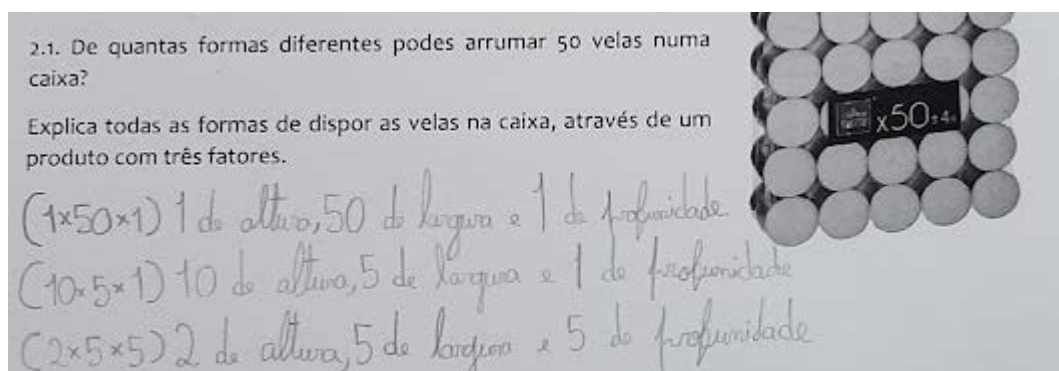 2.1. De quantas formas diferentes podes arrumar 50 velas numa
caixa?
Explica todas as formas de dispor as velas na caixa, através de um
produto com três fatores.
x50±4h
(1×50×1) 1 de altura, 50 de largura e 1 de profunidade
(10×5×1) 10 de altura, 5 de largura e 1 de profunidade
(2×5×5) 2 de altura, 5 de largura e 5 de profunidade